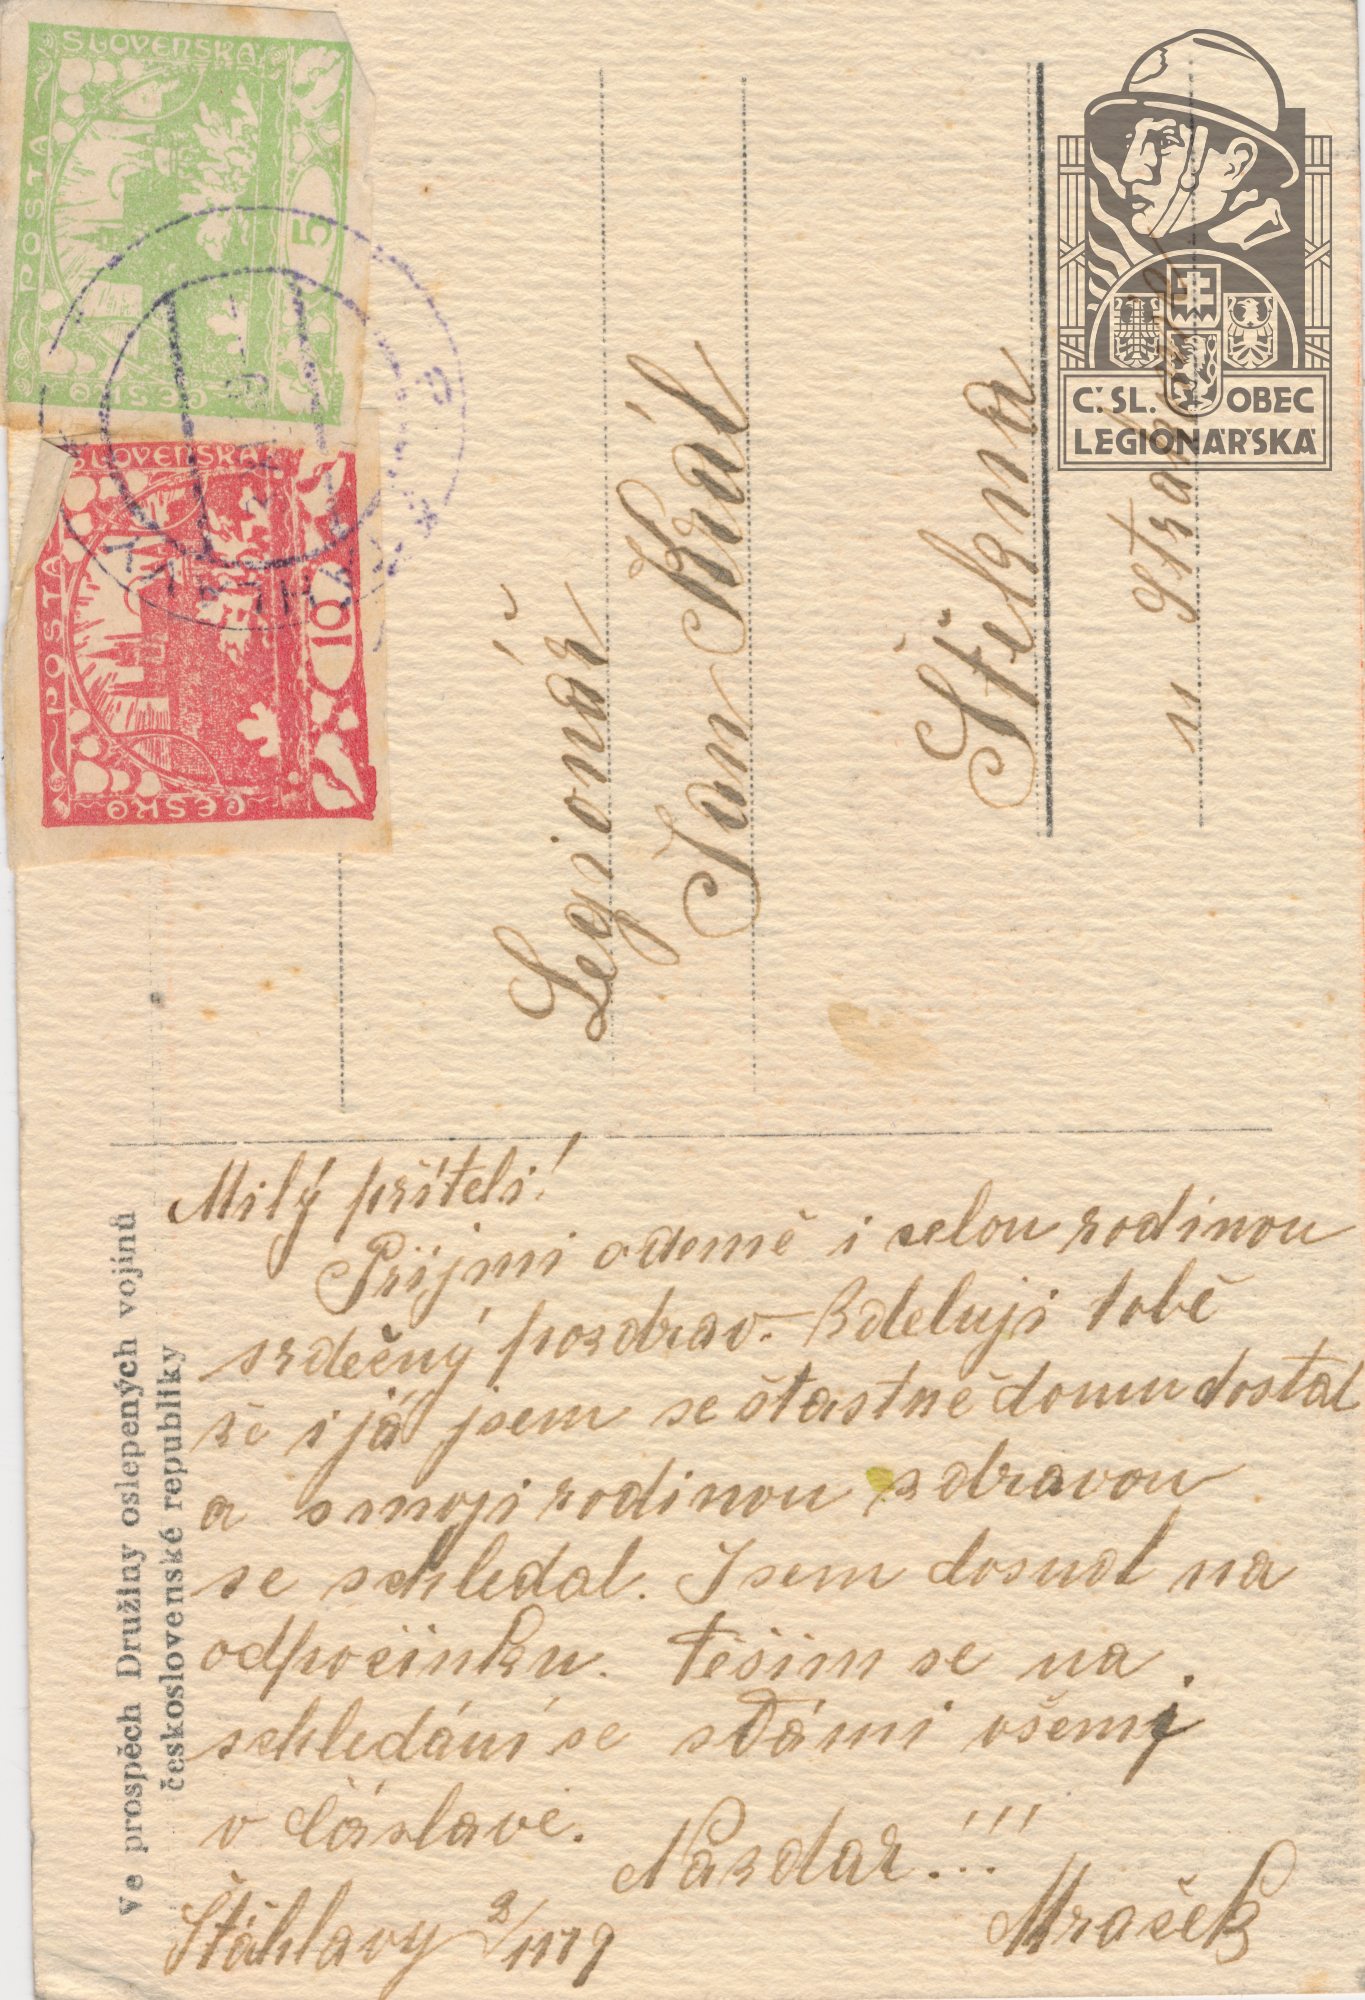 ČESKO
SLOVENSKÁ
POŠTA
5
ČESKO
SLOVENSKÁ
POŠTA
10
Č. SL. OBEC
LEGIONÁŘSKÁ
Legionář
Jan Král
Štěkna
u Strakonic
Ve prospěch Družiny oslepených vojínů
československé republiky
Milý příteli!
Přijmi odemě i celou rodinou
srdečný pozdrav. Zdeluji tobě
že i já jsem se štastně domu dostal
a s moji rodinou zdravou
se schledal. Jsem dosud na
odpočinku. Těšim se na
schledání se s Vámi všemi
v Čáslavi.
Nazdar!!!
Štáhlavy 2/11 19
Mraček